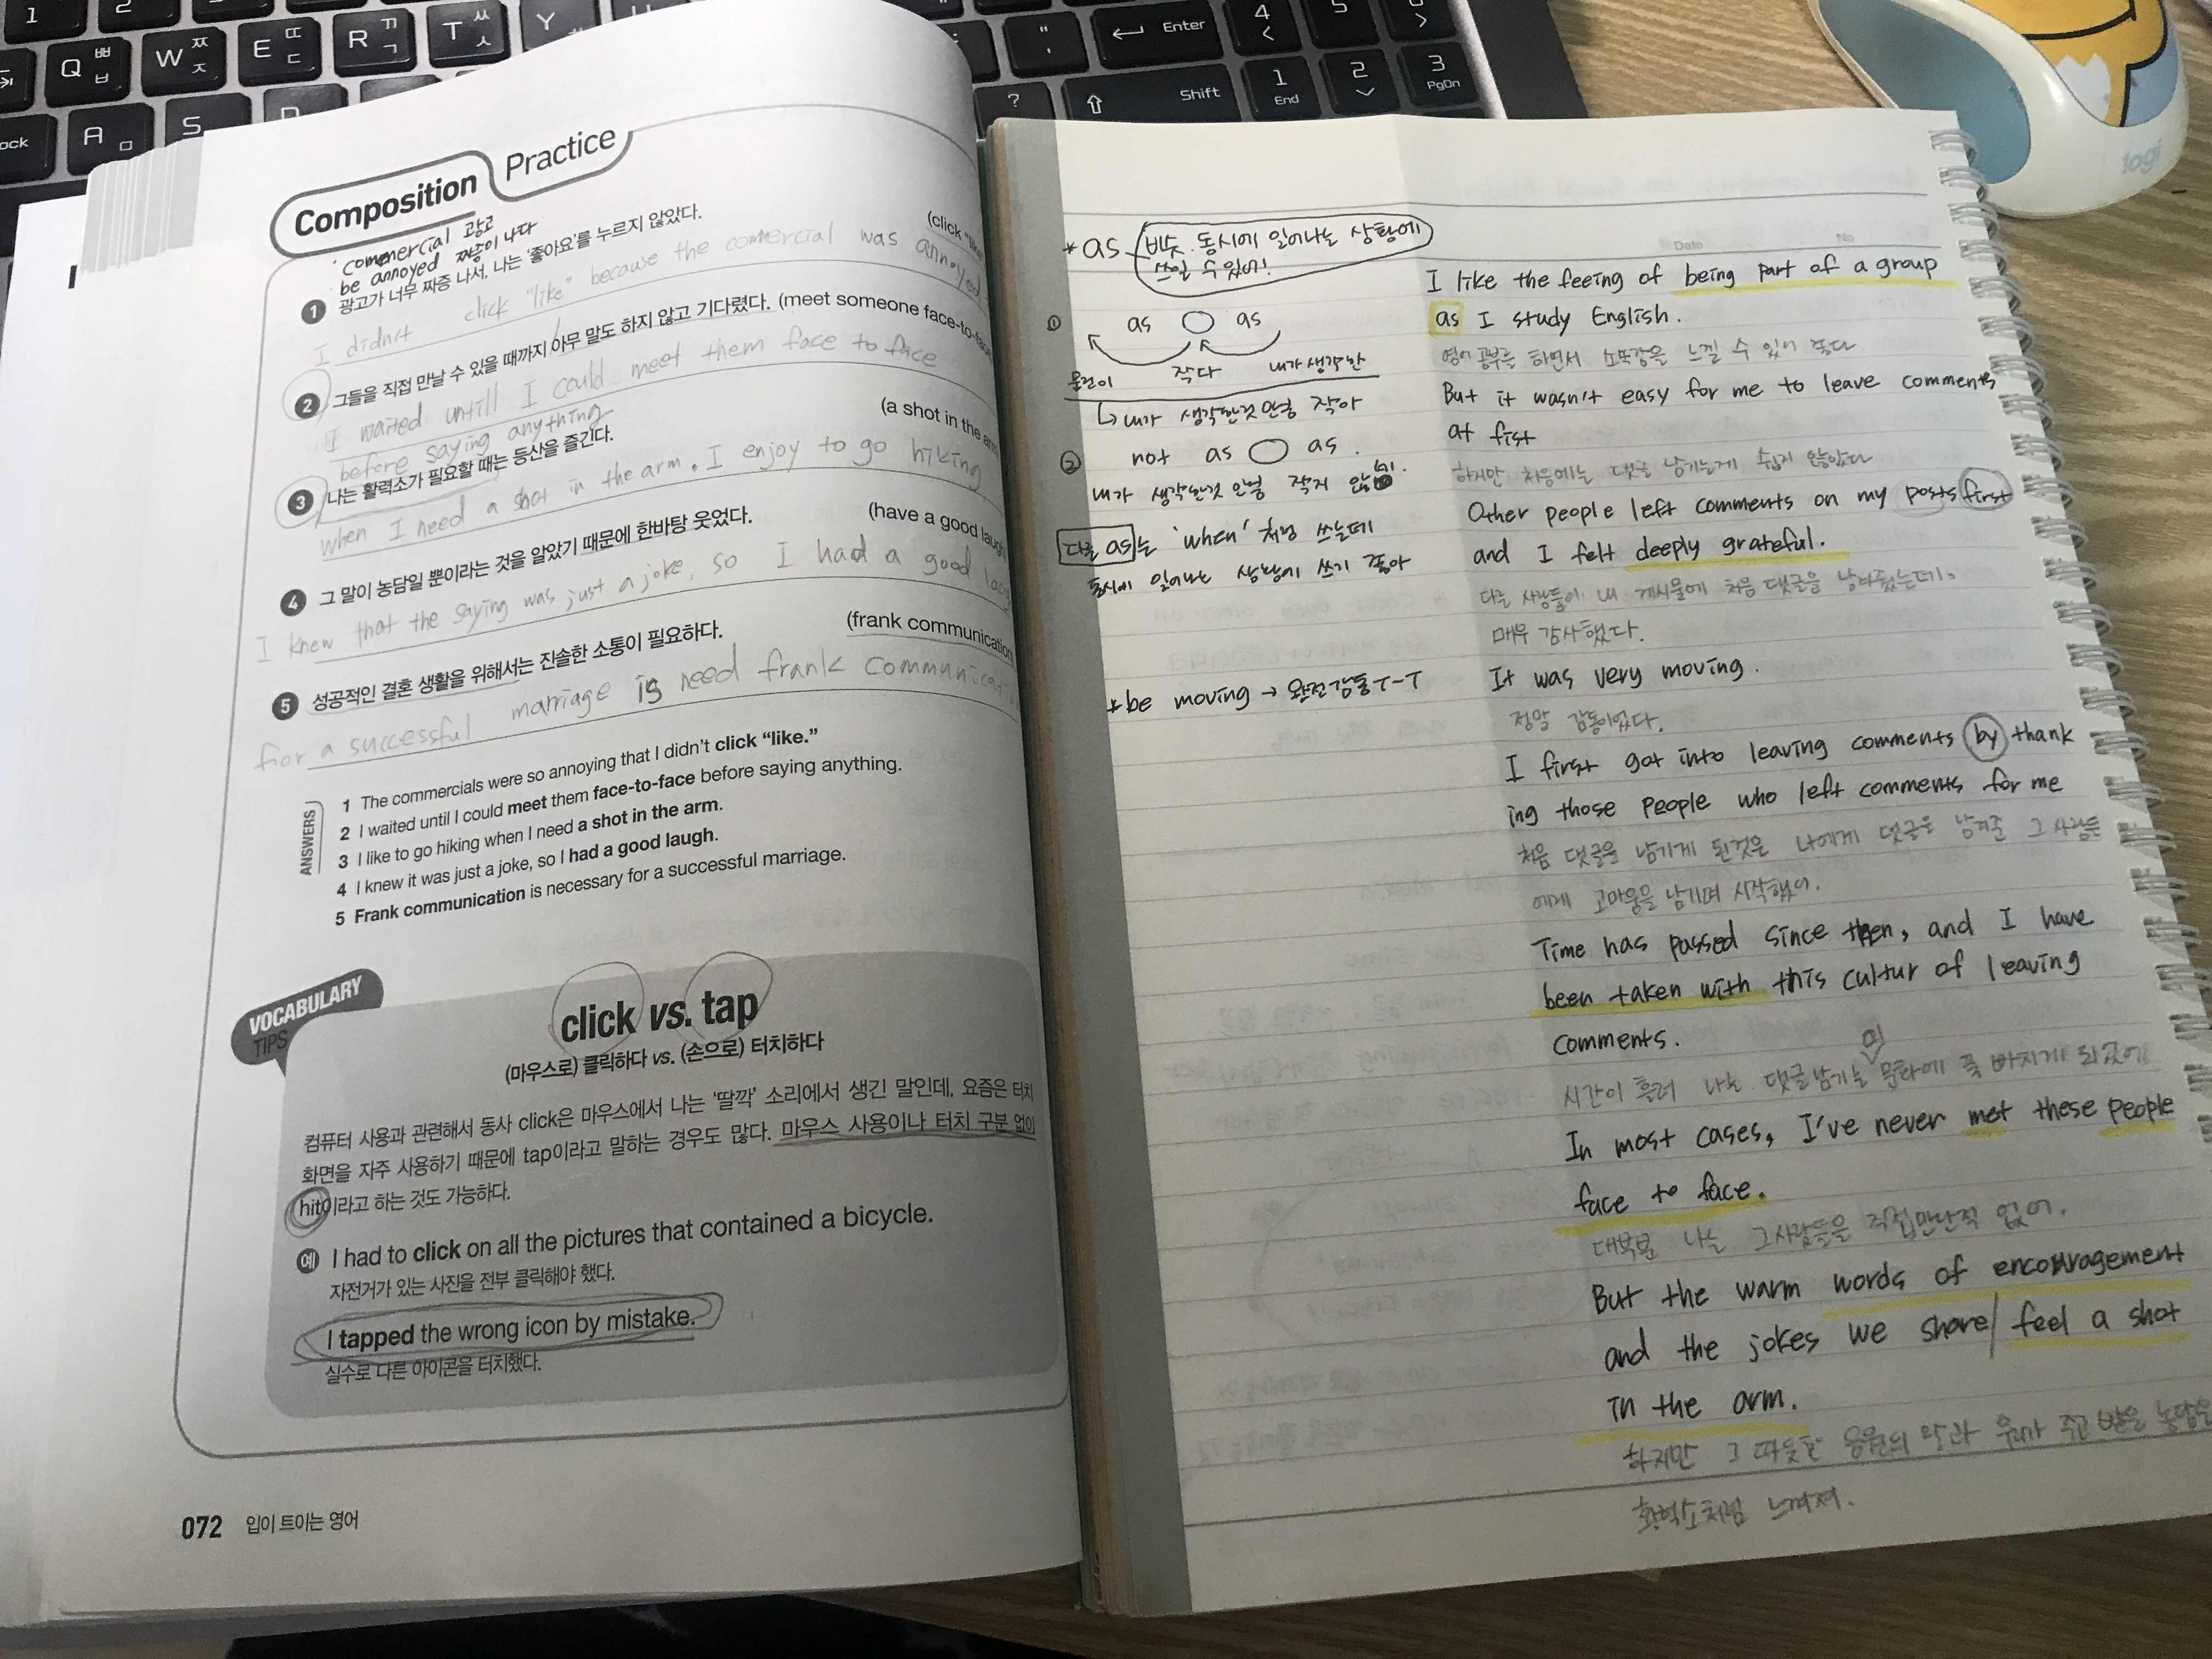 Composition Practice
commercial 광고
be annoyed 짜증이 나다
1 광고가 너무 짜증 나서, 나는 '좋아요'를 누르지 않았다. (click "like"
I didn't click "like" because the comercial was annoyed
2 그들을 직접 만날 수 있을 때까지 아무 말도 하지 않고 기다렸다. (meet someone face-to-face
I waited untill I could meet them face to face
before saying anything
3 나는 활력소가 필요할 때는 등산을 즐긴다. (a shot in the arm
when I need a shot in the arm. I enjoy to go hiking
4 그 말이 농담일 뿐이라는 것을 알았기 때문에 한바탕 웃었다. (have a good laugh
I knew that the saying was just a joke, so I had a good
5 성공적인 결혼 생활을 위해서는 진솔한 소통이 필요하다. (frank communication
for a successful marriage is need frank communicati
ANSWERS
1 The commercials were so annoying that I didn't click "like."
2 I waited until I could meet them face-to-face before saying anything.
3 I like to go hiking when I need a shot in the arm.
4 I knew it was just a joke, so I had a good laugh.
5 Frank communication is necessary for a successful marriage.
VOCABULARY
TIPS
click vs. tap
(마우스로) 클릭하다 vs. (손으로) 터치하다
컴퓨터 사용과 관련해서 동사 click은 마우스에서 나는 '딸깍' 소리에서 생긴 말인데, 요즘은 터치
화면을 자주 사용하기 때문에 tap이라고 말하는 경우도 많다. 마우스 사용이나 터치 구분 없이
hit이라고 하는 것도 가능하다.
예 I had to click on all the pictures that contained a bicycle.
자전거가 있는 사진을 전부 클릭해야 했다.
I tapped the wrong icon by mistake.
실수로 다른 아이콘을 터치했다.
072 입이 트이는 영어
*as - 비슷. 동시에 일어나는 상황에
쓰일 수 있어!
① as ○ as
물건이 작다 내가 생각한
↳ 내가 생각한것 만큼 작아
② not as ○ as.
내가 생각한것 만큼 작지 않네.
다른 as는 'when' 처럼 쓰는데
동시에 일어나는 상황에 쓰기 좋아
*be moving → 완전감동 T-T
Date No
I like the feeing of being part of a group
as I study English.
영어 공부를 하면서 소속감을 느낄 수 있어 좋다
But it wasn't easy for me to leave comments
at fist
하지만 처음에는 댓글 남기는게 쉽지 않았다
Other people left comments on my posts first
and I felt deeply grateful.
다른 사람들이 내 게시물에 처음 댓글을 남겨줬는데.
매우 감사했다.
It was very moving.
정말 감동이었다.
I first got into leaving comments by thank
ing those people who left comments for me
처음 댓글을 남기게 된것은 나에게 댓글을 남겨준 그 사람들
에게 고마움을 남기며 시작했어.
Time has passed since then, and I have
been taken with this cultur of leaving
comments.
시간이 흘러 나는 댓글남기는 문화에 푹 빠지게 되었어
In most cases, I've never met these people
face to face.
대부분 나는 그사람들을 직접만난적 없어.
But the warm words of encouragement
and the jokes we share/ feel a shot
in the arm.
하지만 그 따뜻한 응원의 말과 우리가 주고 받은 농담은
활력소처럼 느껴져.
logi
Q ㅃ ㅂ
W ㅉ ㅈ
E ㄸ ㄷ
R ㄲ ㄱ
T ㅆ ㅅ
Y
A ㅁ
S
Enter
Shift
1 End
2
3 PgDn
4
5